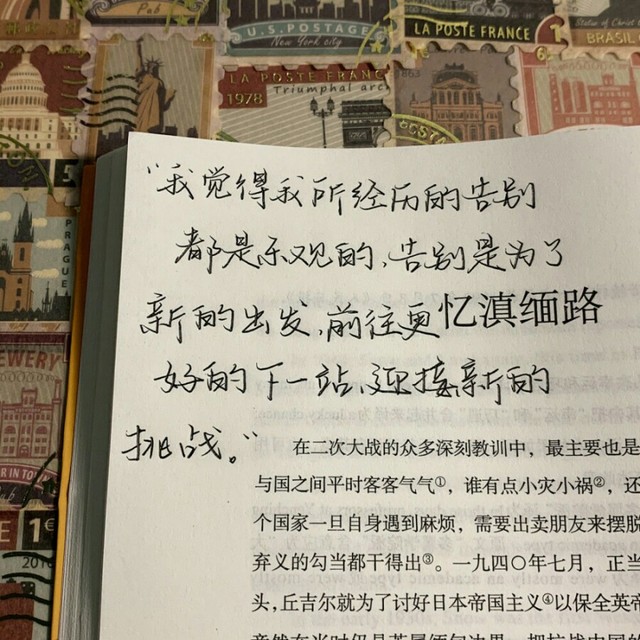 Pub
U.S. POSTAGE
New York city
LA POSTE FRANCE
1
Statue of Christ
BRASIL
LA POSTE FRANC
1978
Triumphal arc
POSTA
5
PRAGUE
EWERY
1€
“我觉得我所经历的告别
都是乐观的,告别是为了
新的出发,前往更忆滇缅路
好的下一站,迎接新的
挑战。”
在二次大战的众多深刻教训中，最主要也是
与国之间平时客客气气①，谁有点小灾小祸②，还
个国家一旦自身遇到麻烦，需要出卖朋友来摆脱
弃义的勾当都干得出③。一九四〇年七月，正当
头，丘吉尔就为了讨好日本帝国主义④以保全英帝